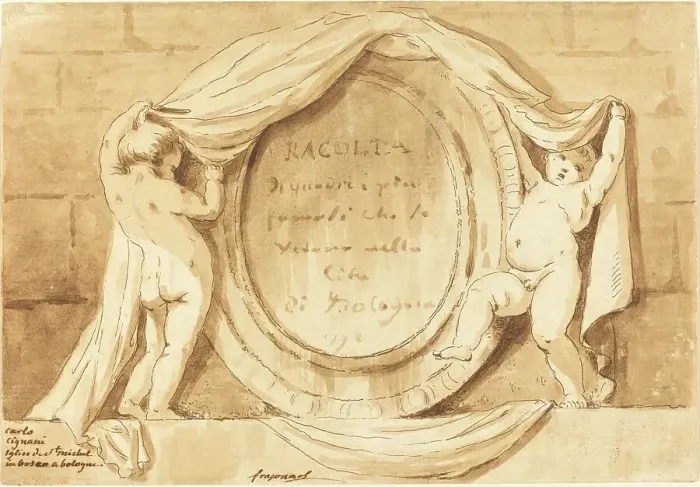 RACOLTA
Di quadri i piu
famosi che se
vedono nella
Cita
Di Bologna
carlo
cignani
église de St michel
in bosco a bologne.
fragonard